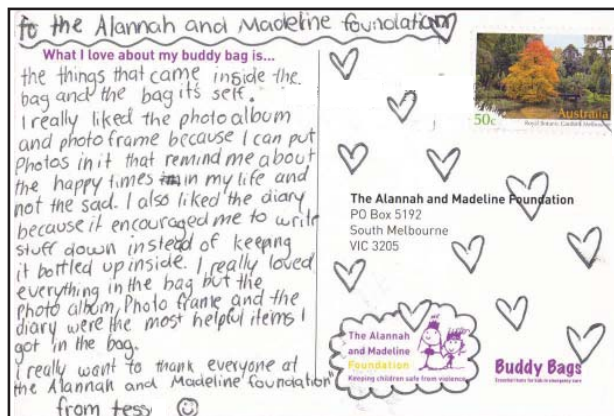 to the Alannah and Madeline foundation
What I love about my buddy bag is...
the things that came inside the
bag and the bag its self.
I really liked the photo album
and photo frame because I can put
Photos in it that remind me about
the happy times in my life and
not the sad. I also liked the diary
because it encouraged me to write
stuff down instead of keeping
it bottled up inside. I really loved
everything in the bag but the
photo album, Photo frame and the
diary were the most helpful items I
got in the bag.
I really want to thank everyone at
the Alannah and Madeline foundation
from tess
50c
Australia
Royal Botanic Gardens Melbourne
The Alannah and Madeline Foundation
PO Box 5192
South Melbourne
VIC 3205
The Alannah
and Madeline
Foundation
Keeping children safe from violence
Buddy Bags
Essential items for kids in emergency care